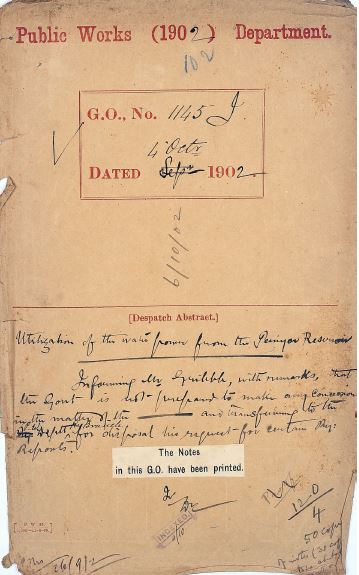 Public Works (1902) Department.
102
G.O., No. 1145 I.
4 Octr
DATED Sepr 1902
6/10/02
[Despatch Abstract.]
Utilization of the water power from the Periyar Reservoir
Informing Mr Gribble, with remarks, that
the Govt is not prepared to make any concession
in the matter of the
and transferring to the
for disposal his request for certain
Reports.
The Notes
in this G.O. have been printed.
INDEXED
120
4
50 copies
26/9/2